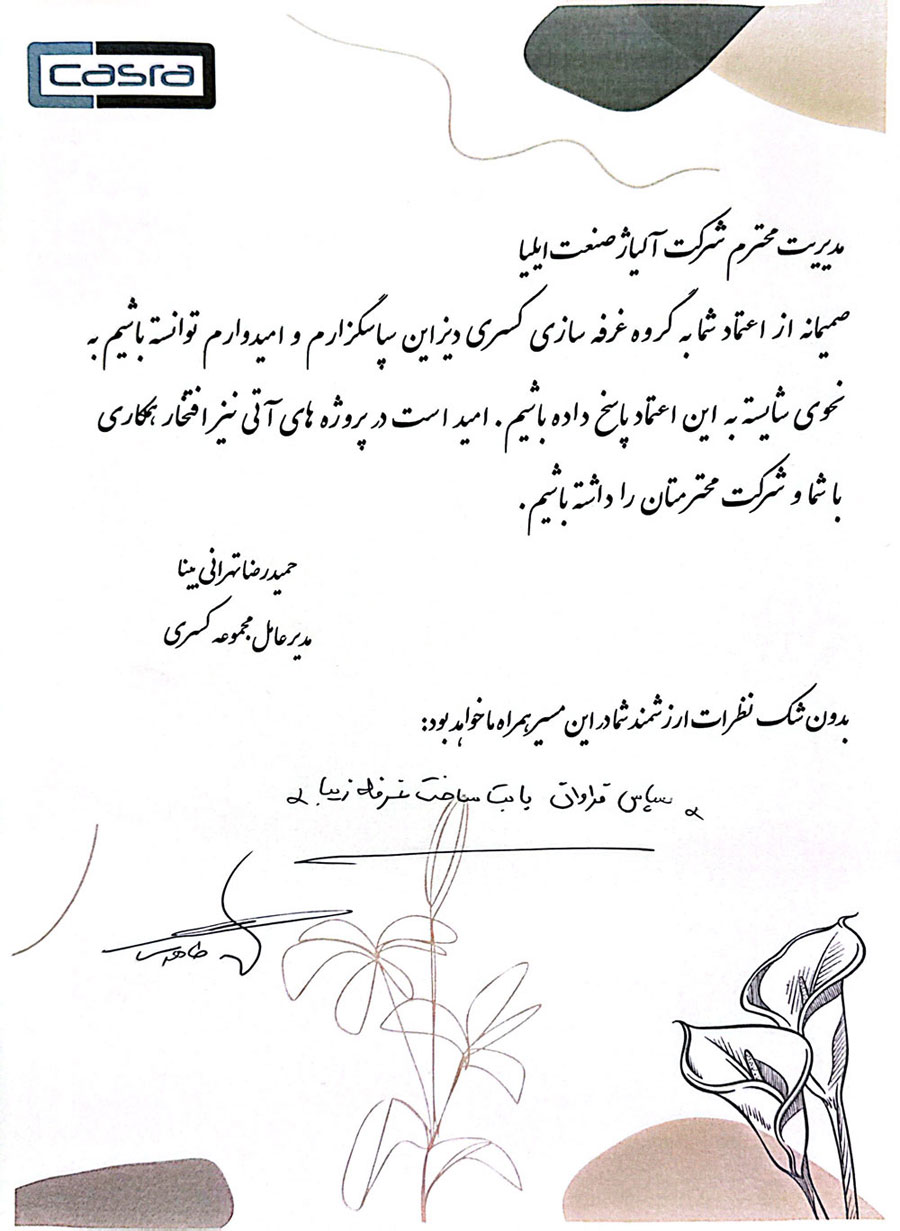 casra
مدیریت محترم شرکت آلیاژ صنعت ایلیا
صمیمانه از اعتماد شما به گروه غرفه سازی کسری دیزاین سپاسگزارم و امیدوارم توانسته باشیم به
نحوی شایسته به این اعتماد پاسخ داده باشیم. امید است در پروژه های آتی نیز افتخار همکاری
با شما و شرکت محترمتان را داشته باشیم.
حمیدرضا تهرانی بینا
مدیرعامل مجموعه کسری
بدون شک نظرات ارزشمند شما در این مسیر همراه ما خواهد بود:
سپاس فراوان بابت ساخت غرفه زیبا